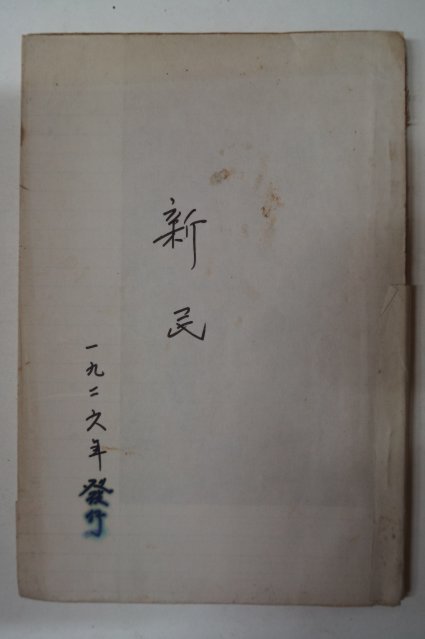 新民
一九二六年發行